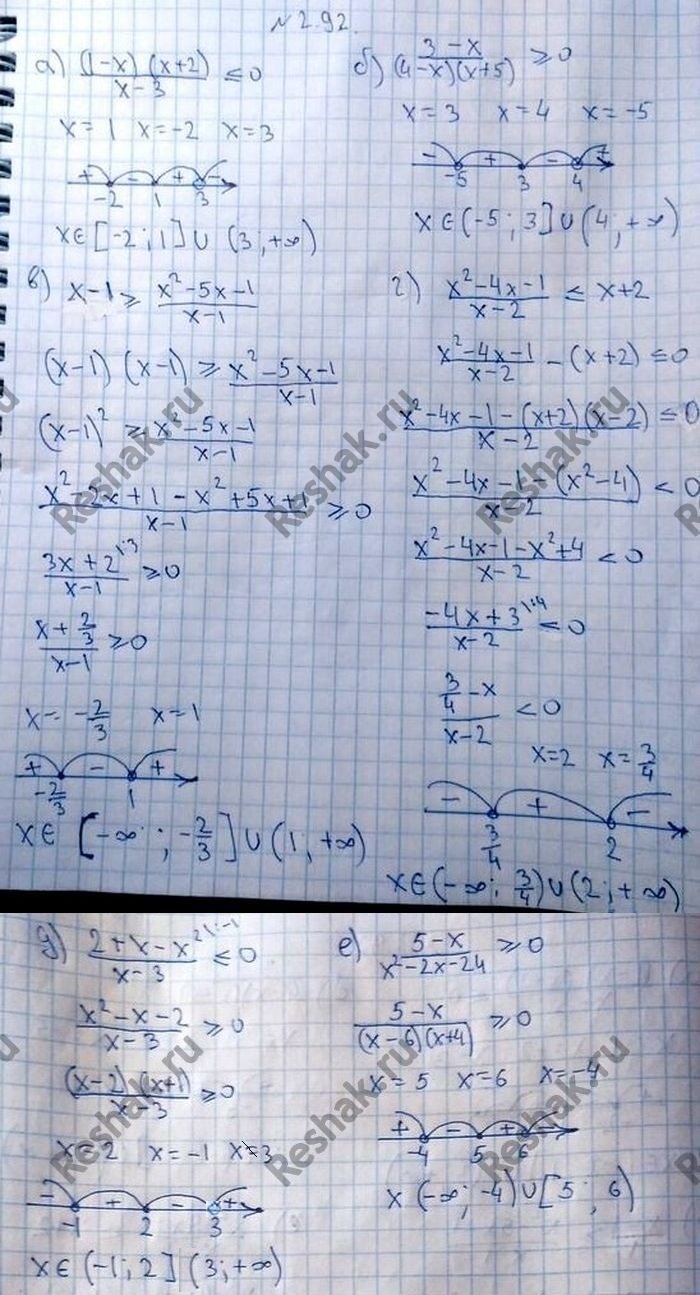 №2.92.
а) (1-x)(x+2) / (x-3) ≤ 0
x=1 x=-2 x=3
+ - + -
-2 1 3
x∈[-2;1]∪(3;+∞)
б) (3-x) / ((4-x)(x+5)) ≥ 0
x=3 x=4 x=-5
- + - +
-5 3 4
x∈(-5;3]∪(4;+∞)
в) x-1 ≥ (x²-5x-1) / (x-1)
(x-1)(x-1) ≥ (x²-5x-1) / (x-1)
(x-1)² ≥ (x²-5x-1) / (x-1)
(x²-2x+1-x²+5x+1) / (x-1) ≥ 0
(3x+2) / (x-1) ≥ 0 |:3
(x+2/3) / (x-1) ≥ 0
x=-2/3 x=1
+ - +
-2/3 1
x∈[-∞;-2/3]∪(1;+∞)
г) (x²-4x-1) / (x-2) ≤ x+2
(x²-4x-1) / (x-2) - (x+2) ≤ 0
(x²-4x-1-(x+2)(x-2)) / (x-2) ≤ 0
(x²-4x-1-(x²-4)) / (x-2) < 0
(x²-4x-1-x²+4) / (x-2) < 0
(-4x+3) / (x-2) ≤ 0 |:4
(3/4-x) / (x-2) < 0
x=2 x=3/4
- + -
3/4 2
x∈(-∞;3/4)∪(2;+∞)
д) (2+x-x²) / (x-3) ≤ 0 |:-1
(x²-x-2) / (x-3) ≥ 0
(x-2)(x+1) / (x-3) ≥ 0
x=2 x=-1 x=3
- + - +
-1 2 3
x∈(-1;2](3;+∞)
е) (5-x) / (x²-2x-24) ≥ 0
(5-x) / ((x-6)(x+4)) ≥ 0
x=5 x=6 x=-4
+ - + -
-4 5 6
x(-∞;-4)∪[5;6)
Reshak.ru
Reshak.ru
Reshak.ru
Reshak.ru
Reshak.ru
Reshak.ru